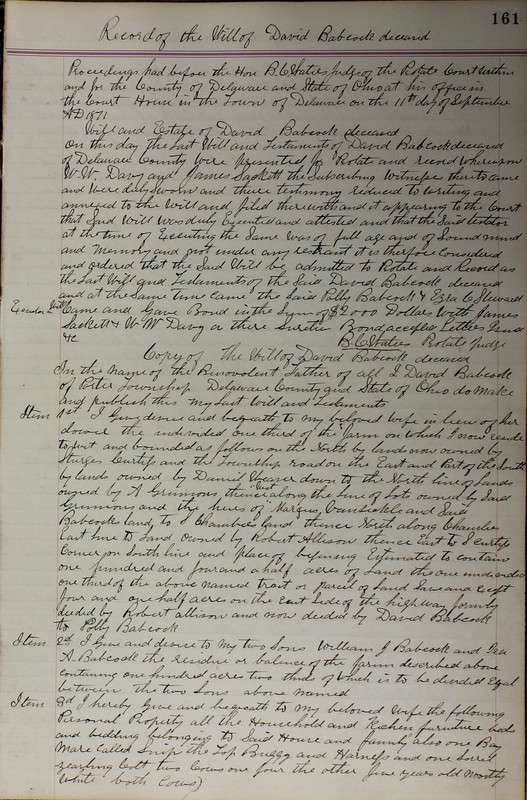 161
Record of the Will of David Babcock deceased
Proceedings had before the Hon B.C. Waters Judge of the Probate Court within
and for the County of Delaware and State of Ohio at his office in
the Court House in the Town of Delaware on the 11th day of September
AD 1871
Will and Estate of David Babcock deceased
On this day the Last Will and Testaments of David Babcock deceased
of Delaware County were presented for Probate and record whereupon
W.W. Davy and James Sackett the Subscribing Witnesses thereto came
and were duly sworn and there testimony reduced to writing and
annexed to the Will and filed therewith and it appearing to the Court
that Said Will was duly Executed and attested and that the Said testator
at the time of Executing the Same was of full age and of Sound mind
and Memory and not under any restraint it is therefore considered
and ordered that the Said Will be admitted to Probate and Record as
the Last Will and Testaments of the Said David Babcock deceased
and at the same time came the Said Polly Babcock & Ezra C
Came and Gave Bond in the Sum of $2000 Dollars With James
Sackett & W W Davy as there Sureties Bond accepted Letters
&c B.C. Waters Probate Judge
Copy of the Will of David Babcock deceased
In the Name of the Benevolent Father of all I David Babcock
of Porter Township Delaware County and State of Ohio do Make
and publish this my Last Will and Testaments
Item 1st I Give devise and bequeath to my beloved wife in lieu of her
dower the undivided one third of the farm on which I now reside
to wit and bounded as follows on the North by lands now owned by
Sturges Curtiss and the Township road on the East and Part of the South
by lands owned by Daniel Weaver down to the North line of Lands
owned by A Grimmons thence along the Line of Lots owned by Said
Grimmons and the heirs of Marcus Vansickle and Said
Babcocks land to Chambers land thence North along Chambers
East line to Land owned by Robert Allison thence East to Curtiss
Corner on South line and place of begining Estimated to contain
one hundred and four and a half acres of Land the one undivided
one third of the above named tract or parcel of Land Save and Except
four and one half acres on the East Side of the highway formerly
deeded by Robert allison and now deeded by David Babcock
to Polly Babcock
Item 2d I Give and devise to My two Sons William J Babcock and
A. Babcock the residue or balance of the farm described above
containing one hundred acres two thirds of which is to be divided Equal
between the two Sons above named
Item 3d I hereby Give and bequeath to my beloved Wife the following
Personal Property all the Household and Kitchen furniture beds
and bedding belonging to Said House and family also one Bay
Mare Called Snip the Top Buggy and Harness and one Sorrel
yearling Colt two Cows one four the other five years old Mostly
White both Cows)